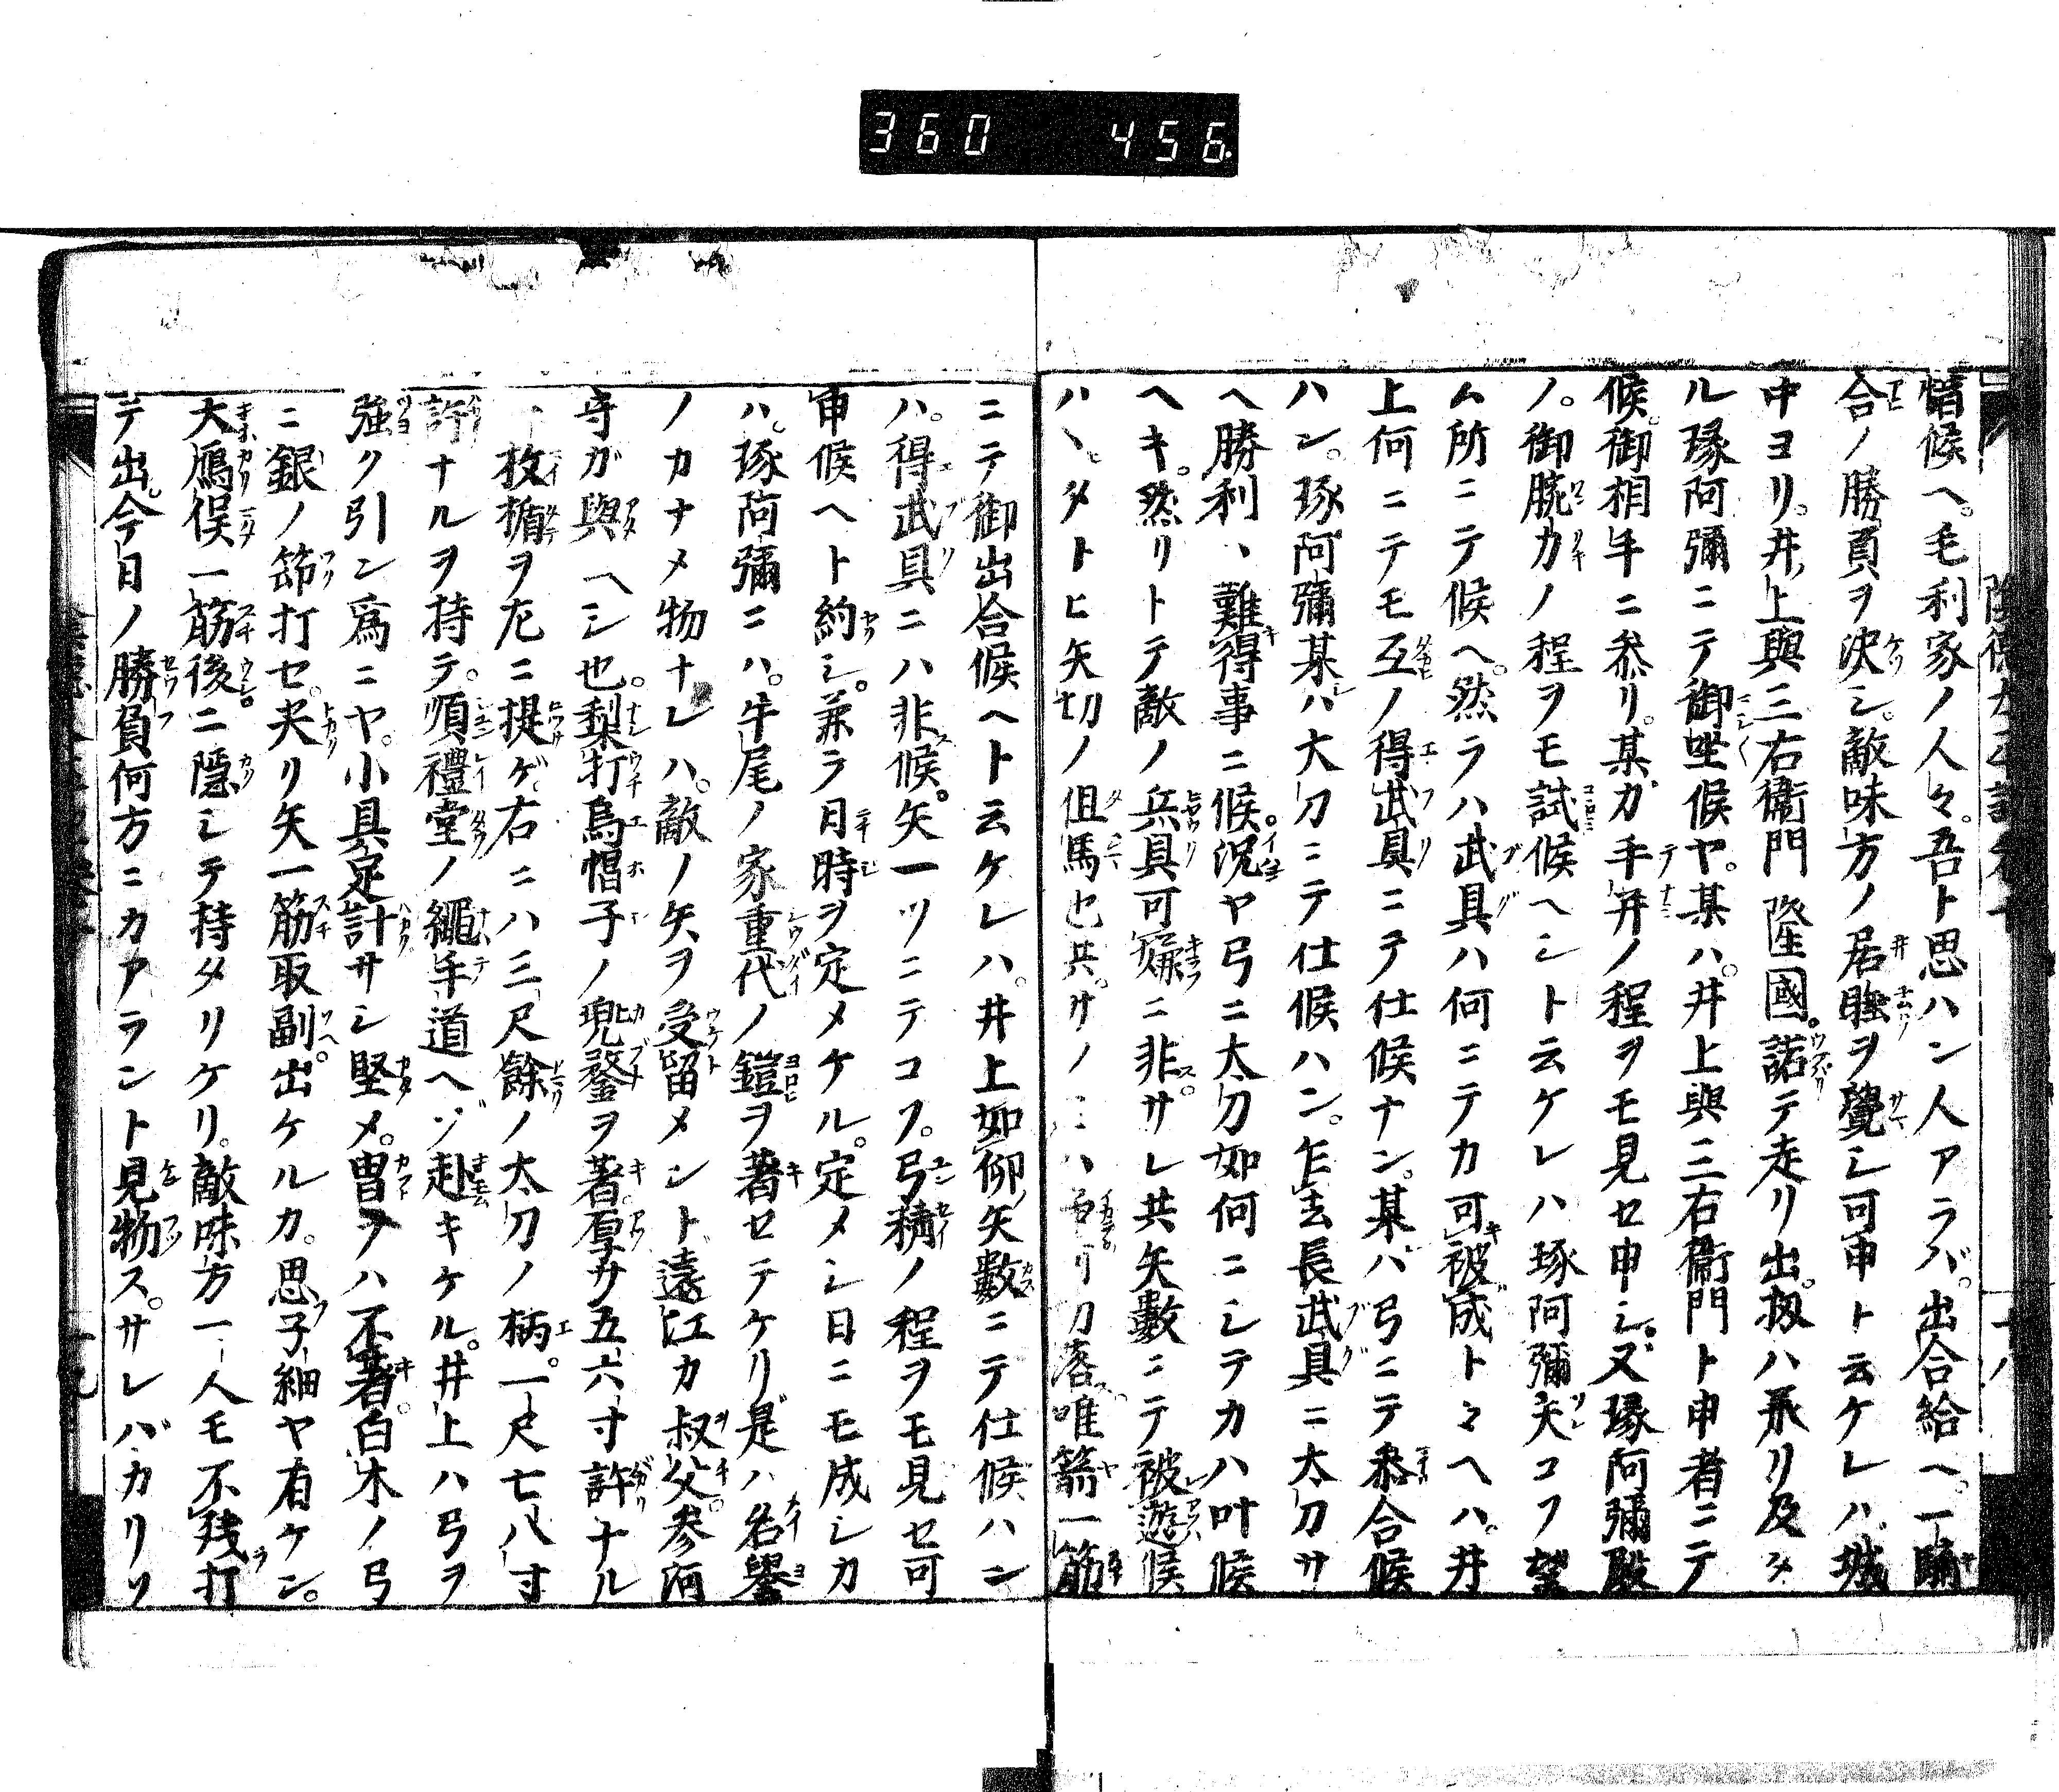 360 456
惜候ヘ。毛利家ノ人々。吾ト思ハン人アラバ。出合給ヘ。一騎
合ノ勝負ヲ決シ。敵味方ノ居睡ヲ覺シ可申ト云ケレハ。城
中ヨリ。井上與三右衞門 隆國。諾テ走リ出。扨ハ承リ及タ
ル琢阿彌ニテ御坐候ヤ。某ハ。井上與三右衞門ト申者ニテ
候。御相手ニ參リ。某ガ手並ノ程ヲモ見セ申シ。又琢阿彌殿
ノ。御腕力ノ程ヲモ試候ヘシト云ケレハ琢阿彌夫コフ望
ム所ニテ候ヘ。然ラハ武具ハ何ニテカ可被成トマヘハ。井
上何ニテモ互ノ得武具ニテ仕候ナン。某ハ弓ニテ參合候
ハン。琢阿彌某ハ大刀ニテ仕候ハン。乍去長武具ニ太刀サ
ヘ勝利ハ難得事ニ候。況ヤ弓ニ太刀如何ニシテカハ叶候
ヘキ。然リトテ敵ノ兵具可嫌ニ非サレ共矢數ニテ被遊候
ハヽタトヒ矢切ノ但馬也共。サノミハ切リ落唯箭一筋
ニテ御出合候ヘト云ケレハ。井上如仰矢數ニテ仕候ハン
ハ。得武具ニハ非候。矢一ツニテコフ。弓精ノ程ヲモ見セ可
申候ヘト約シ。兼テ日時ヲ定メケル。定メシ日ニモ成シカ
ハ。琢阿彌ニハ。牛尾ノ家重代ノ鎧ヲ著セテケリ是ハ名譽
ノカナメ物ナレハ。敵ノ矢ヲ受留メント遠江カ叔父參河
守ガ與ヘシ也。梨打烏帽子ノ兜鍪ヲ著。厚サ五六寸許ナル
一枚楯ヲ左ニ提ゲ。右ニハ三尺餘ノ太刀ノ柄。一尺七八寸
許ナルヲ持テ。順禮堂ノ繩手道ヘゾ赴キケル。井上ハ弓ヲ
強ク引ン爲ニヤ。小具足計サシ堅メ。冑ヲハ不著。白木ノ弓
ニ銀ノ節打セ。夾リ矢一筋取副。出ケルカ。思子細ヤ有ケン。
大鴈俣一筋後ニ隱シテ持タリケリ。敵味方一人モ不殘打
テ出。今日ノ勝負何方ニカアラント見物ス。サレバカリソ